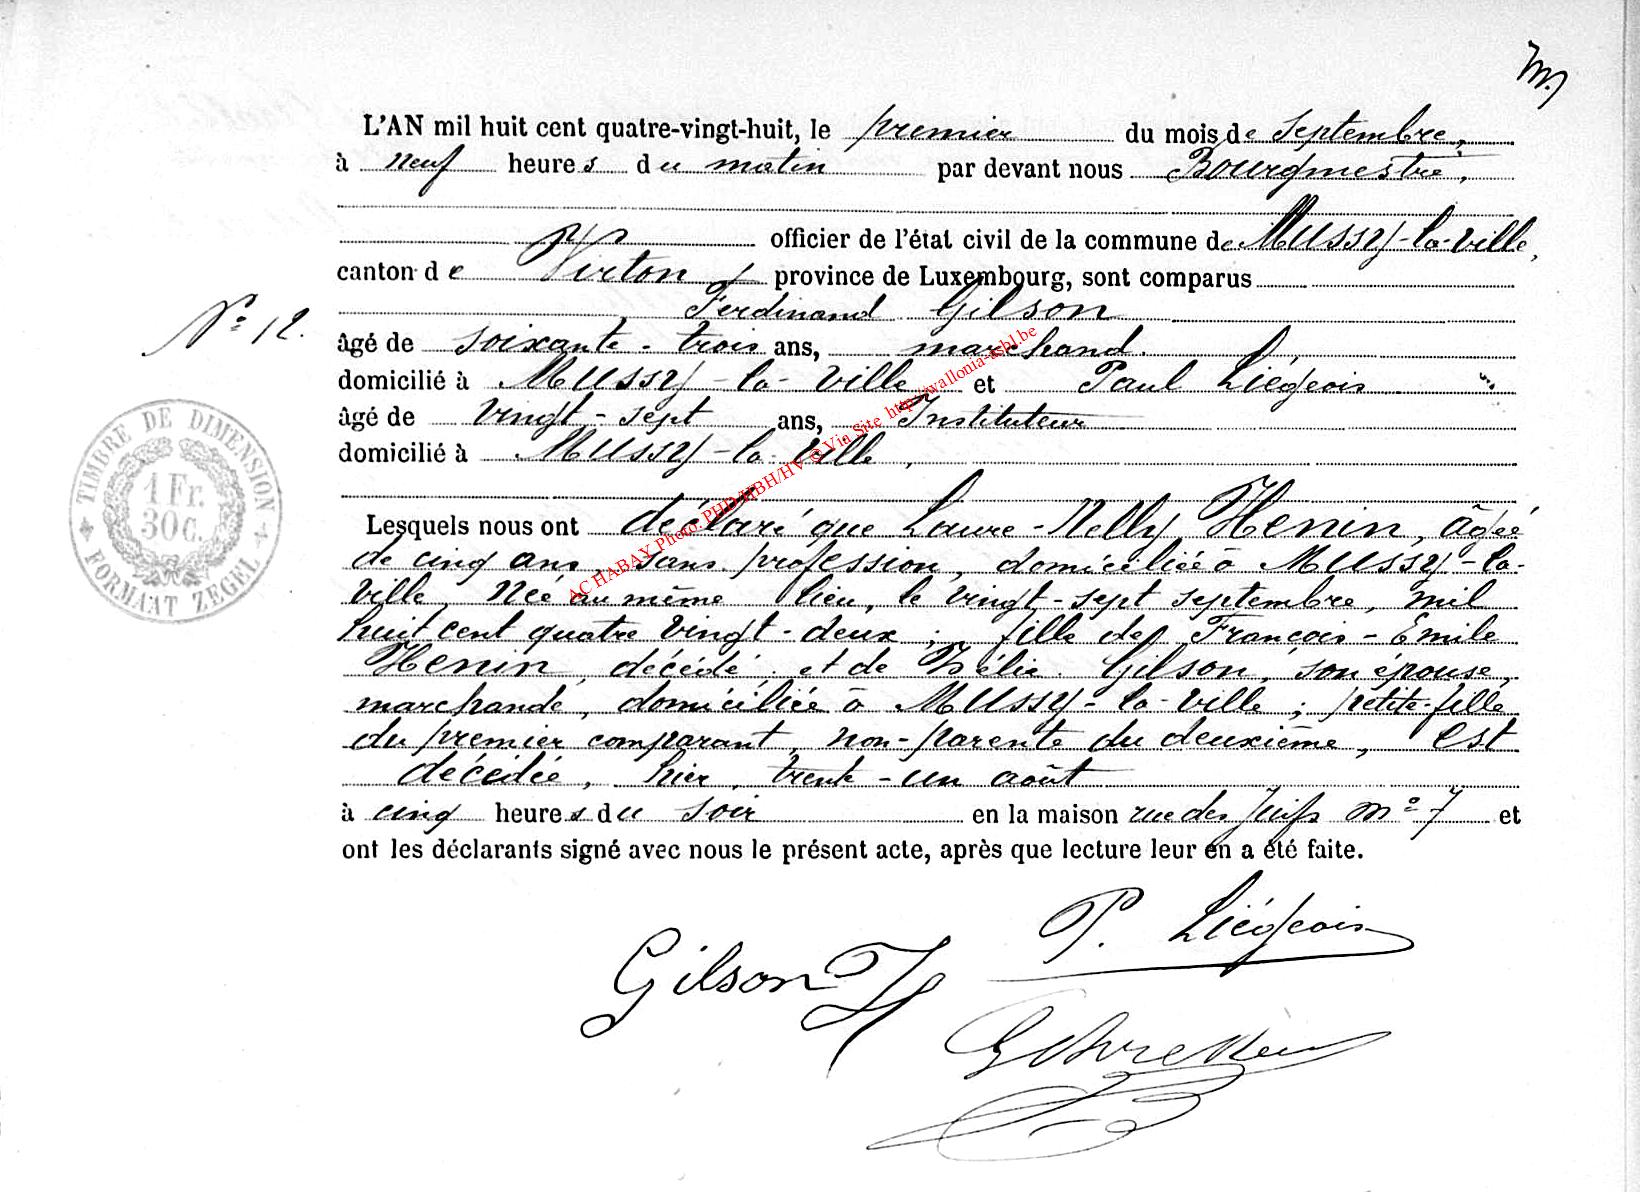 L'AN mil huit cent quatre-vingt-huit, le premier du mois de Septembre,
à neuf heures du matin par devant nous Bourgmestre,
officier de l'état civil de la commune de Mussy-la-Ville,
canton de Virton, province de Luxembourg, sont comparus
Ferdinand Gilson
N° 12.
âgé de soixante-trois ans, marchand.
domicilié à Mussy-la-Ville et Paul Liégeois
âgé de vingt-sept ans, Instituteur
domicilié à Mussy-la-Ville,
Lesquels nous ont déclaré que Laure-Nelly Henin, âgée
de cinq ans, sans profession, domiciliée à Mussy-la-
Ville, Née au même lieu, le vingt-sept septembre, mil
huit cent quatre vingt-deux; fille de François-Emile
Henin, décédé, et de Zélie Gilson, son épouse,
marchande, domiciliée à Mussy-la-Ville; petite-fille
du premier comparant, non-parente du deuxième, est
décédée, hier, trente-un août
à cinq heures du soir en la maison rue des Juifs n° 7 et
ont les déclarants signé avec nous le présent acte, après que lecture leur en a été faite.
P. Liégeois
Gilson F
TIMBRE DE DIMENSION
1 Fr.
30 C.
FORMAAT ZEGEL
AC HABAY Photo: PHD/HBH/HV © Via Site http://wallonia-asbl.be